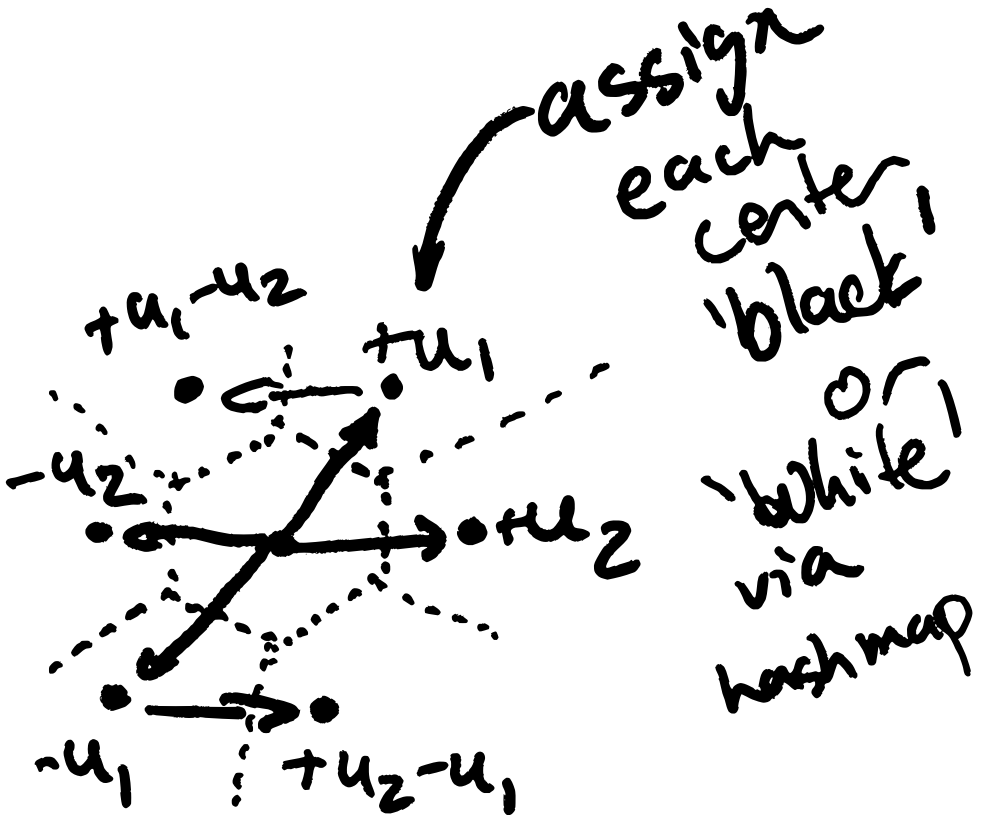 assign
each
center
'black'
or
'white'
via
hashmap
+u₁-u₂
+u₁
-u₂
+u₂
-u₁
+u₂-u₁